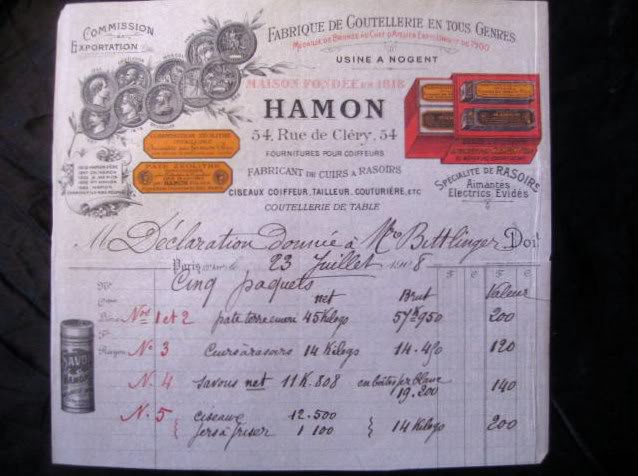 COMMISSION
EXPORTATION
FABRIQUE DE COUTELLERIE EN TOUS GENRES
MÉDAILLE DE BRONZE AU CHEF D'ATELIER EXPᵒⁿ UNIVˡˡᵉ DE 1900
USINE A NOGENT
MAISON FONDÉE EN 1818
HAMON
54, Rue de Cléry, 54
FOURNITURES POUR COIFFEURS
FABRICANT DE CUIRS A RASOIRS
CISEAUX COIFFEUR, TAILLEUR, COUTURIÈRE, ETC
COUTELLERIE DE TABLE
SPÉCIALITÉ DE RASOIRS
Aimantés
Electrics Evidés
M Déclaration donnée à Mre Bittlinger Doit
Paris, le 23 Juillet 8
Cinq paquets
net Brut Valeur
Nos 1 et 2 pate 45 Kilogs 57K950 200
No 3 Cuirs à rasoirs 14 Kilogs 14.410 120
N. 4 Savons net 11K.808 en boîtes fer blanc 19.200 140
N. 5 ciseaux 12.500
fers à friser 1 100 14 Kilogs 200
SAVON
HAMON